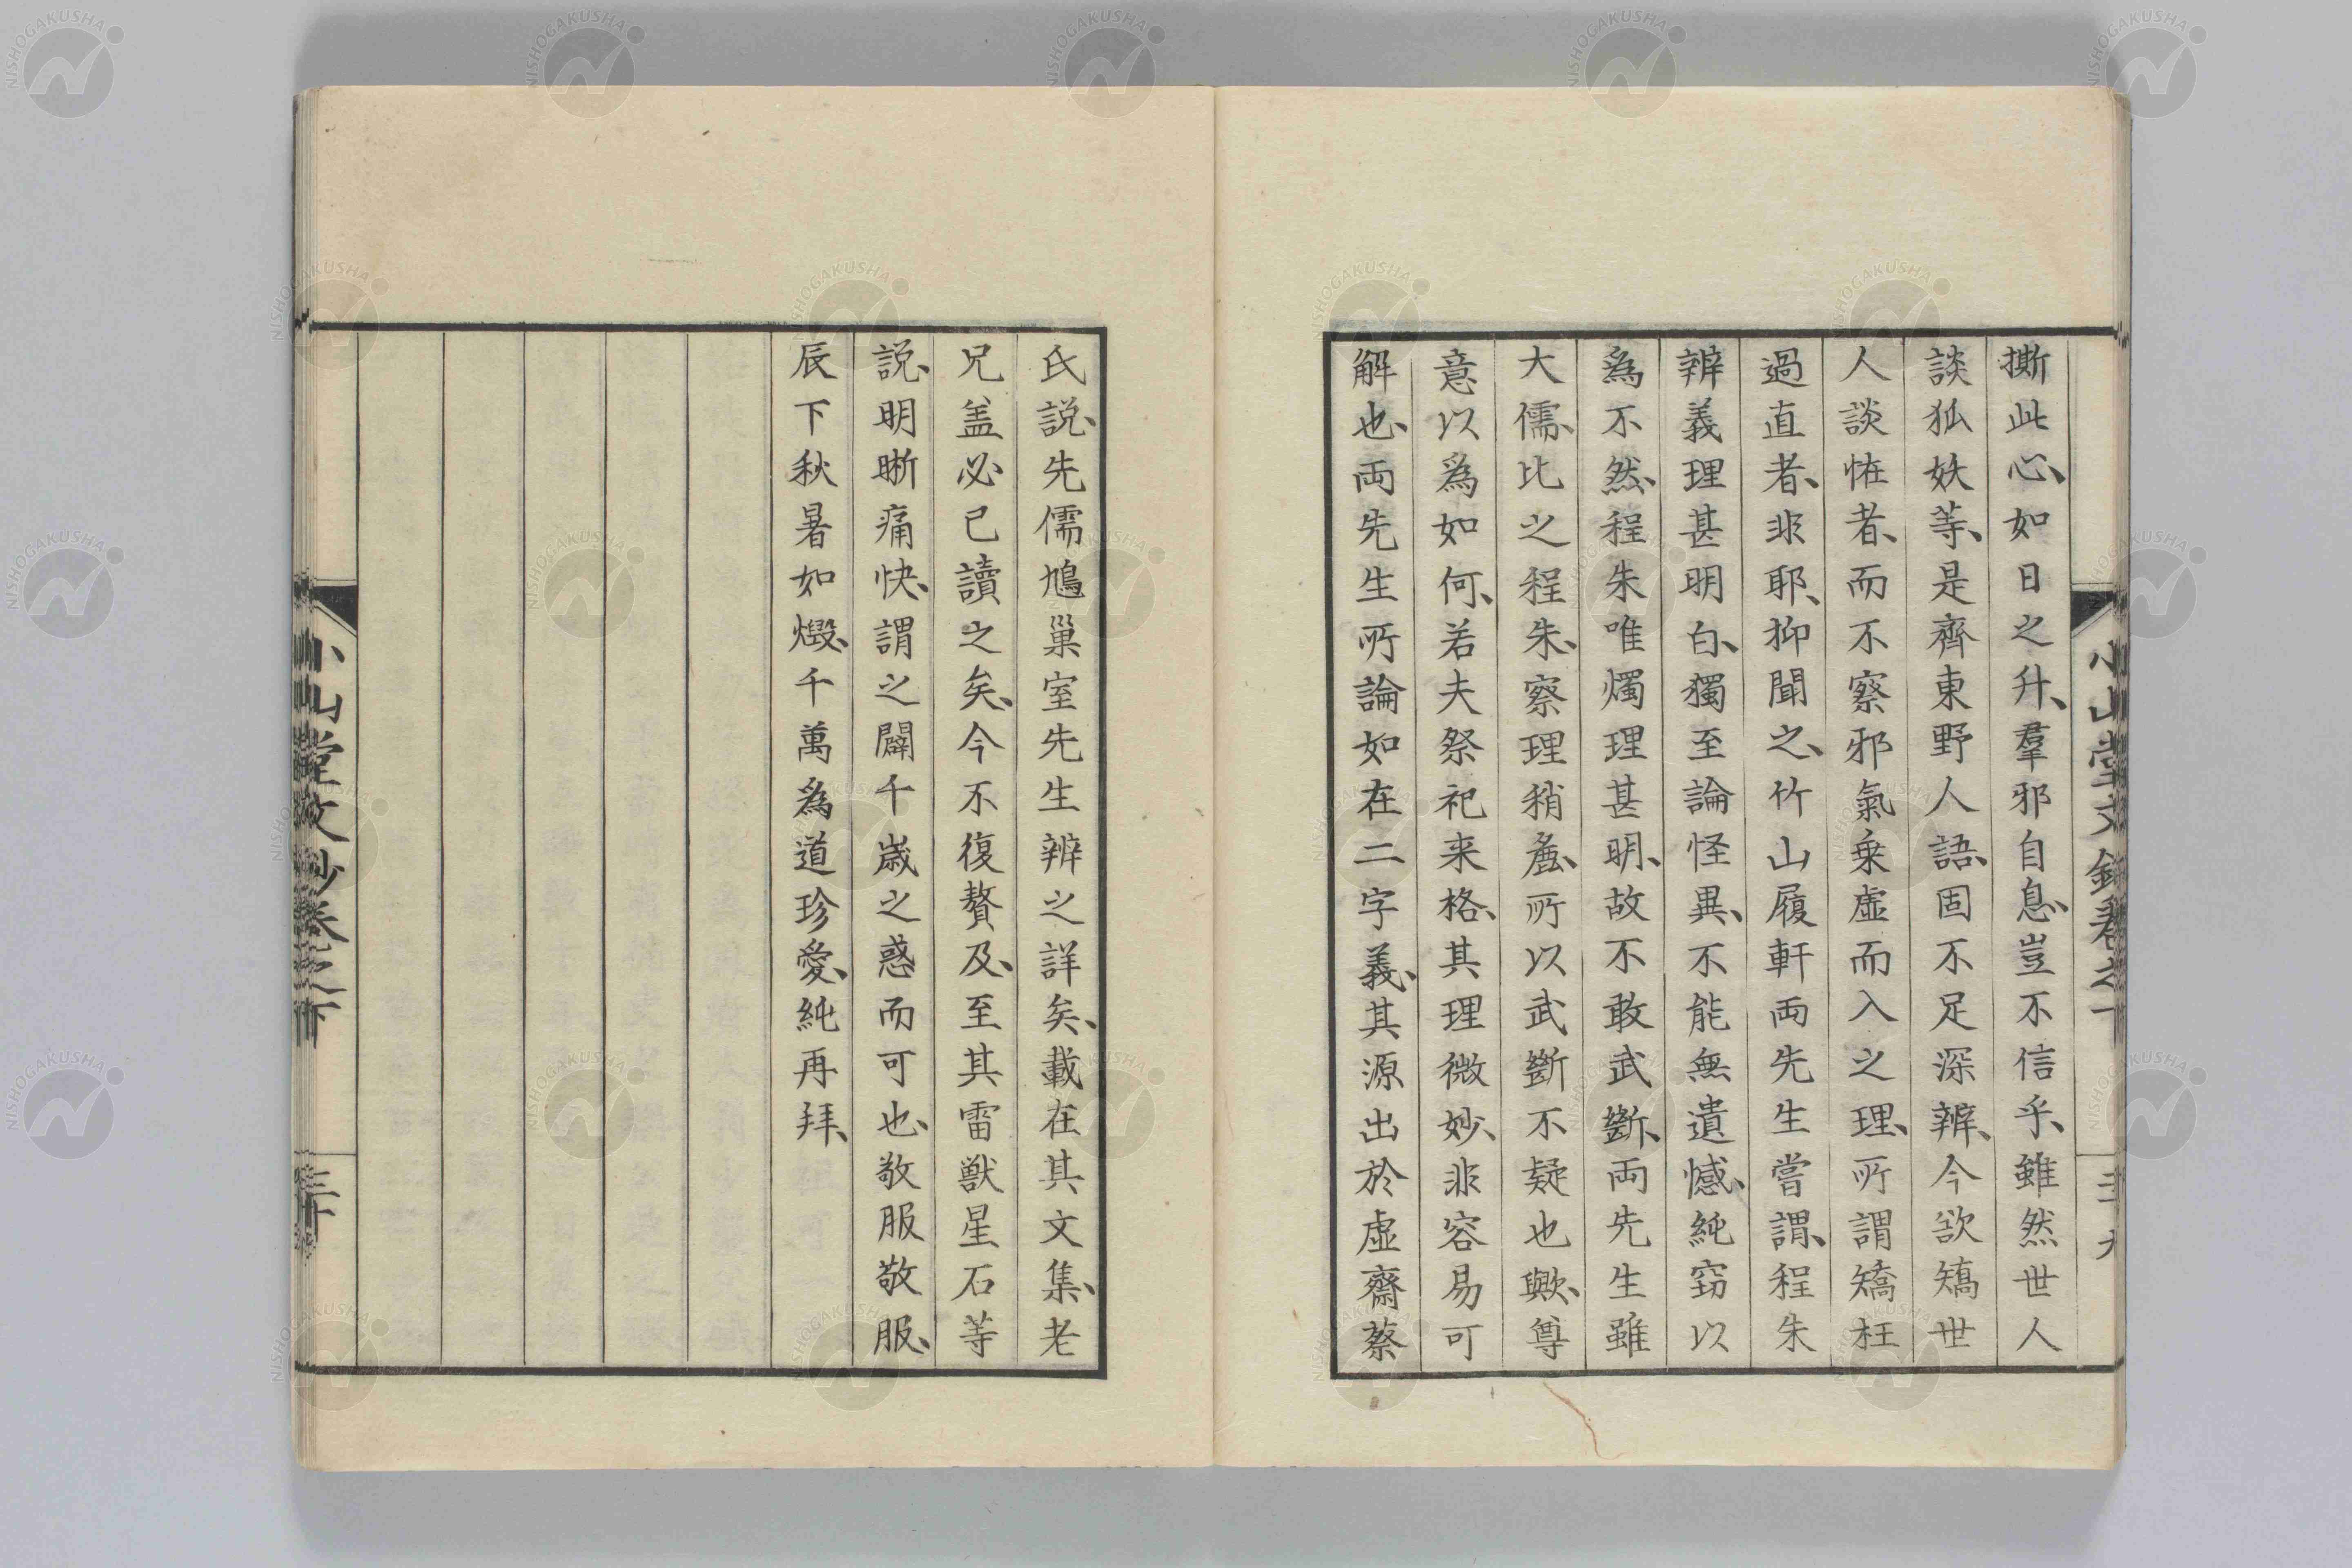 撕此心、如日之升、羣邪自息、豈不信乎、雖然世人
談狐妖等、是齊東野人語、固不足深辨、今欲矯世
人談恠者、而不察邪氣乗虛而入之理、所謂矯枉
過直者、非耶、抑聞之、竹山履軒両先生嘗謂、程朱
辨義理甚明白、獨至論怪異、不能無遺憾、純窃以
為不然、程朱唯燭理甚明、故不敢武斷、両先生雖
大儒、比之程朱、察理稍麁、所以武斷不疑也歟、尊
意以爲如何、若夫祭祀来格、其理微妙、非容易可
解也、両先生所論如在二字義、其源出於虛齋蔡
氏説、先儒鳩巢室先生辨之詳矣、載在其文集、老
兄盖必已讀之矣、今不復贅及、至其雷獣星石等
説、明晰痛快、謂之闢千歳之惑而可也、敬服敬服、
辰下秋暑如燬、千萬爲道珍愛、純再拜、
小山堂文鈔卷之下
三十